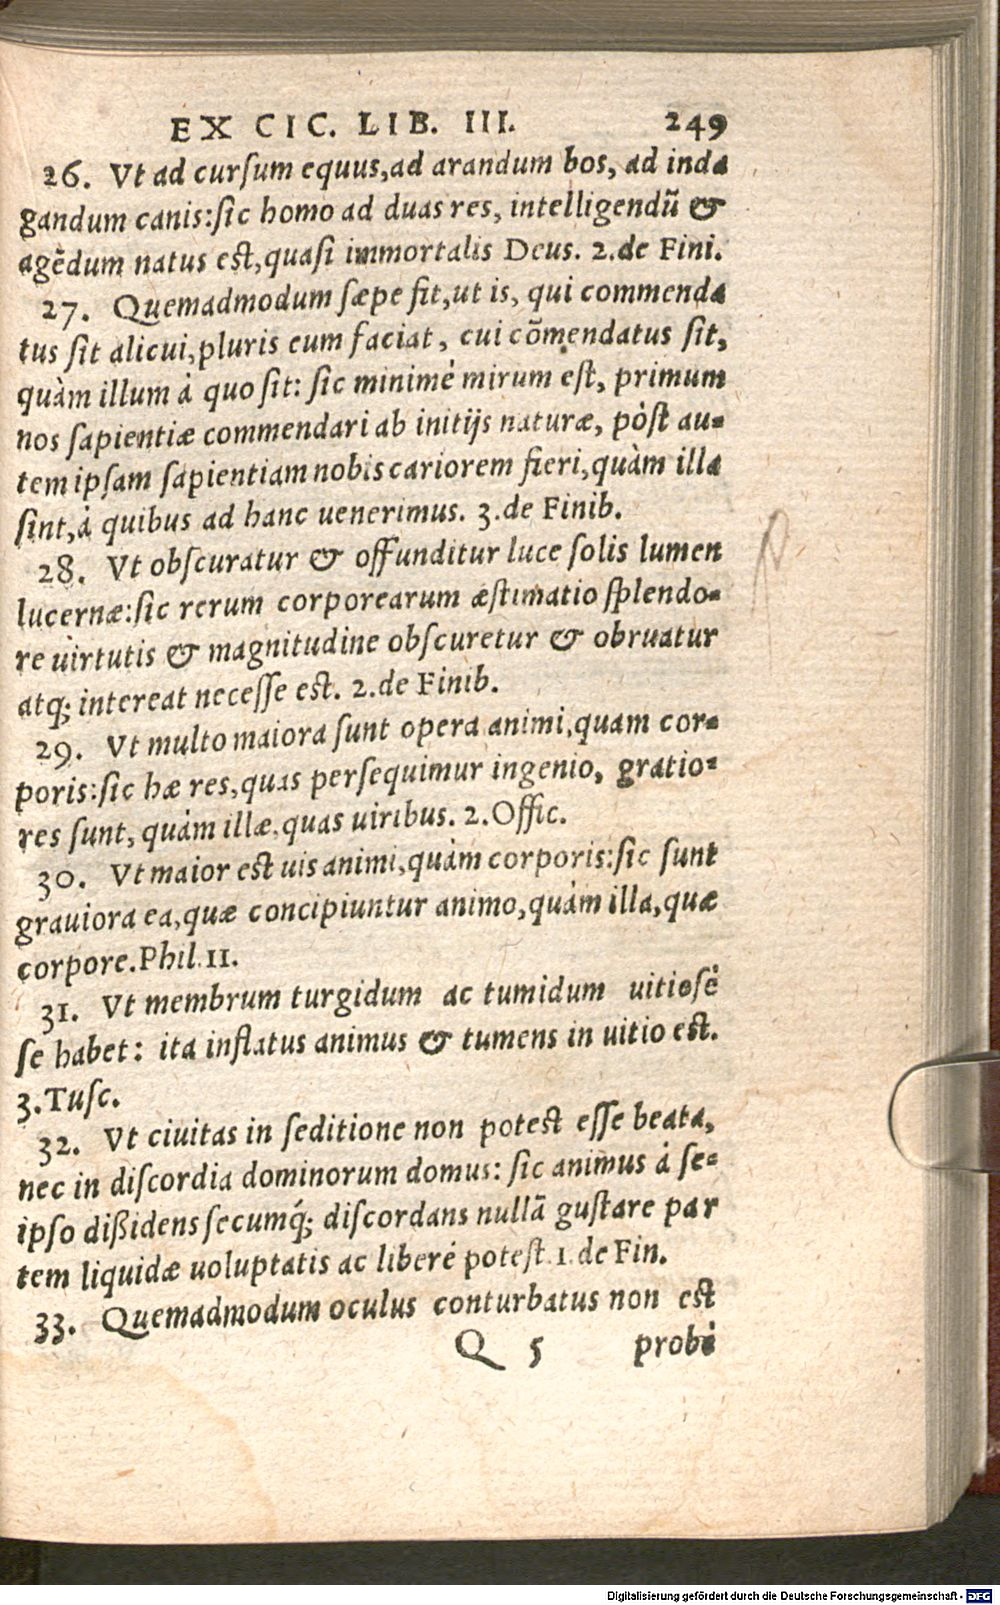 EX CIC. LIB. III. 249
26. Vt ad curſum equus, ad arandum bos, ad inda
gandum canis: ſic homo ad duas res, intelligendũ &
agẽdum natus eſt, quaſi immortalis Deus. 2. de Fini.
27. Quemadmodum ſæpe fit, ut is, qui commenda
tus ſit alicui, pluris eum faciat, cui cõmendatus ſit,
quàm illum à quo ſit: ſic minimé mirum eſt, primum
nos ſapientiæ commendari ab initijs naturæ, pòſt au-
tem ipſam ſapientiam nobis cariorem fieri, quàm illa
ſint, à quibus ad hanc uenerimus. 3. de Finib.
28. Vt obſcuratur & offunditur luce ſolis lumen
lucernæ: ſic rerum corporearum æſtimatio ſplendo-
re uirtutis & magnitudine obſcuretur & obruatur
atq; intereat neceſſe eſt. 2. de Finib.
29. Vt multo maiora ſunt opera animi, quam cor-
poris: ſic hæ res, quas perſequimur ingenio, gratio-
res ſunt, quàm illæ, quas uiribus. 2. Offic.
30. Vt maior eſt uis animi, quàm corporis: ſic ſunt
grauiora ea, quæ concipiuntur animo, quàm illa, quæ
corpore. Phil. 11.
31. Vt membrum turgidum ac tumidum uitioſé
ſe habet: ita inflatus animus & tumens in uitio eſt.
3. Tuſc.
32. Vt ciuitas in ſeditione non poteſt eſſe beata,
nec in diſcordia dominorum domus: ſic animus à ſe-
ipſo dißidens ſecumq́; diſcordans nullã guſtare par
tem liquidæ uoluptatis ac liberé poteſt. 1. de Fin.
33. Quemadmodum oculus conturbatus non eſt
Q 5 probé
Digitalisierung gefördert durch die Deutsche Forschungsgemeinschaft - DFG